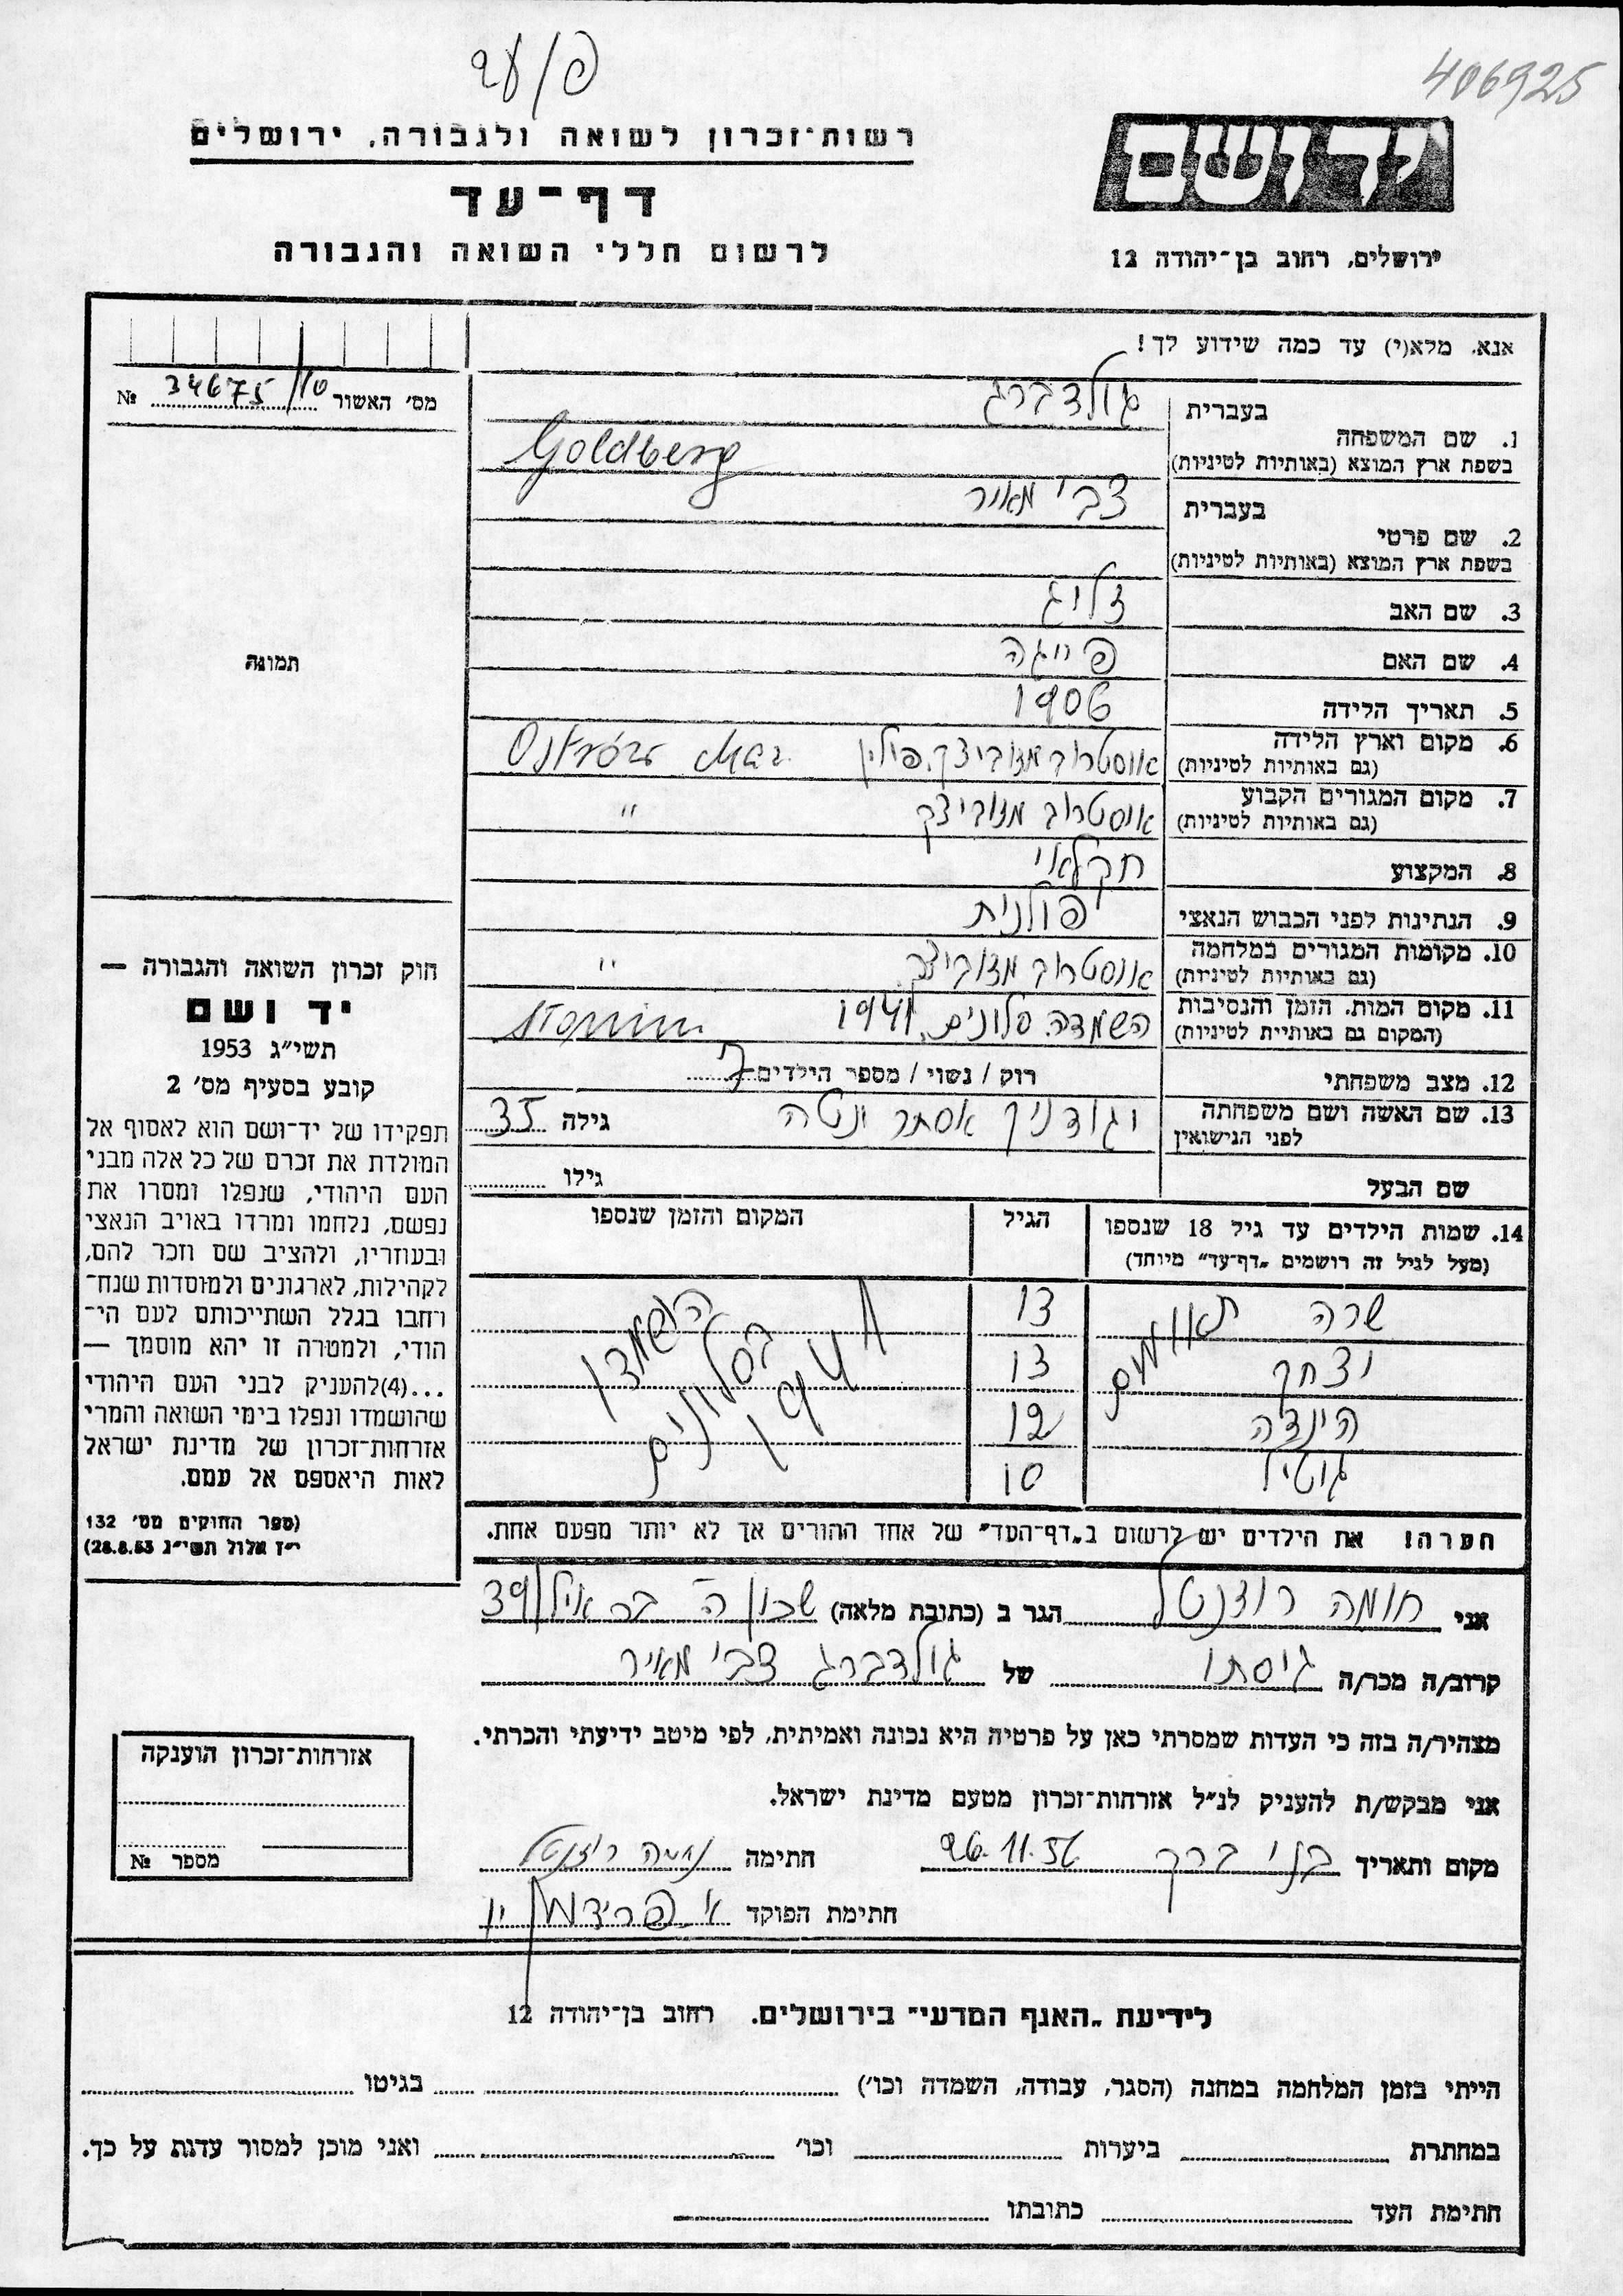 406925
פ/עד
ידושם
רשות־זכרון לשואה ולגבורה, ירושלים
דף־עד
ירושלים, רחוב בן־יהודה 12
לרשום חללי השואה והגבורה
אנא, מלא(י) עד כמה שידוע לך!
מס׳ האשור 34675/10 №
תמונה
בעברית גולדברג
1. שם המשפחה
בשפת ארץ המוצא (באותיות לטיניות) Goldberg
בעברית צבי מאיר
2. שם פרטי
בשפת ארץ המוצא (באותיות לטיניות)
3. שם האב זליג
4. שם האם פייגה
5. תאריך הלידה 1906
6. מקום וארץ הלידה אוסטרוב מזוביצק, פולין Ostrów Maz.
(גם באותיות לטיניות)
7. מקום המגורים הקבוע אוסטרוב מזוביצק "
(גם באותיות לטיניות)
8. המקצוע חקלאי
9. הנתינות לפני הכבוש הנאצי פולנית
10. מקומות המגורים במלחמה אוסטרוב מזוביצק "
(גם באותיות לטיניות)
11. מקום המות, הזמן והנסיבות השמדה סלונים, 1941
(המקום גם באותיית לטיניות)
12. מצב משפחתי רוק / נשוי / מספר הילדים 7
13. שם האשה ושם משפחתה וגודניק אסתר ינטה גילה 35
לפני הנישואין
שם הבעל גילו
14. שמות הילדים עד גיל 18 שנספו הגיל המקום והזמן שנספו
(מעל לגיל זה רושמים „דף־עד" מיוחד)
שרה תאומים 13 הושמדו
יצחק 13 בסלונים
הינדה 12 1941
גוטיל 10
הערה! את הילדים יש לרשום ב„דף־העד" של אחד ההורים אך לא יותר מפעם אחת.
חוק זכרון השואה והגבורה —
יד ושם
תשי״ג 1953
קובע בסעיף מס׳ 2
תפקידו של יד־ושם הוא לאסוף אל
המולדת את זכרם של כל אלה מבני
העם היהודי, שנפלו ומסרו את
נפשם, נלחמו ומרדו באויב הנאצי
ובעוזריו, ולהציב שם וזכר להם,
לקהילות, לארגונים ולמוסדות שנח־
רחבו בגלל השתייכותם לעם הי־
הודי, ולמטרה זו יהא מוסמך —
...(4)להעניק לבני העם היהודי
שהושמדו ונפלו בימי השואה והמרי
אזרחות־זכרון של מדינת ישראל
לאות היאספם אל עמם.
(ספר החוקים מס׳ 132
י״ז אלול תשי״ג 28.8.53)
אני נחמה רוזנטל הגר ב (כתובת מלאה) שכון ה׳ בר אילן 39
קרוב/ה מכר/ה גיסתו של גולדברג צבי מאיר
מצהיר/ה בזה כי העדות שמסרתי כאן על פרטיה היא נכונה ואמיתית, לפי מיטב ידיעתי והכרתי.
אני מבקש/ת להעניק לנ״ל אזרחות־זכרון מטעם מדינת ישראל.
מקום ותאריך בני ברק 26.11.56 חתימה נחמה רוזנטל
חתימת הפוקד א. פרידמן
אזרחות־זכרון הוענקה
מספר №
לידיעת „האגף המדעי" בירושלים, רחוב בן־יהודה 12
הייתי בזמן המלחמה במחנה (הסגר, עבודה, השמדה וכו׳) בגיטו
במחתרת ביערות וכו׳ ואני מוכן למסור עדות על כך.
חתימת העד כתובתו